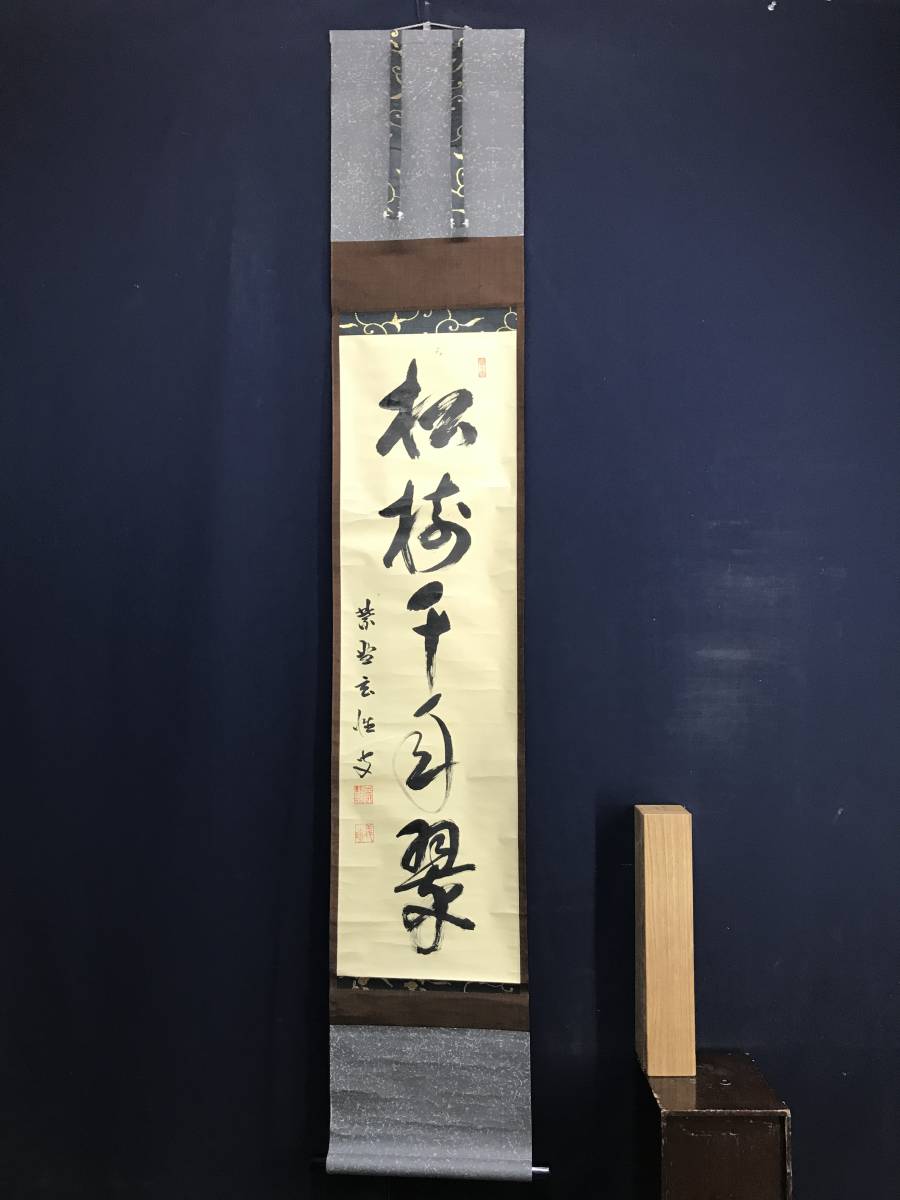 松樹千年翠
紫野玄性書